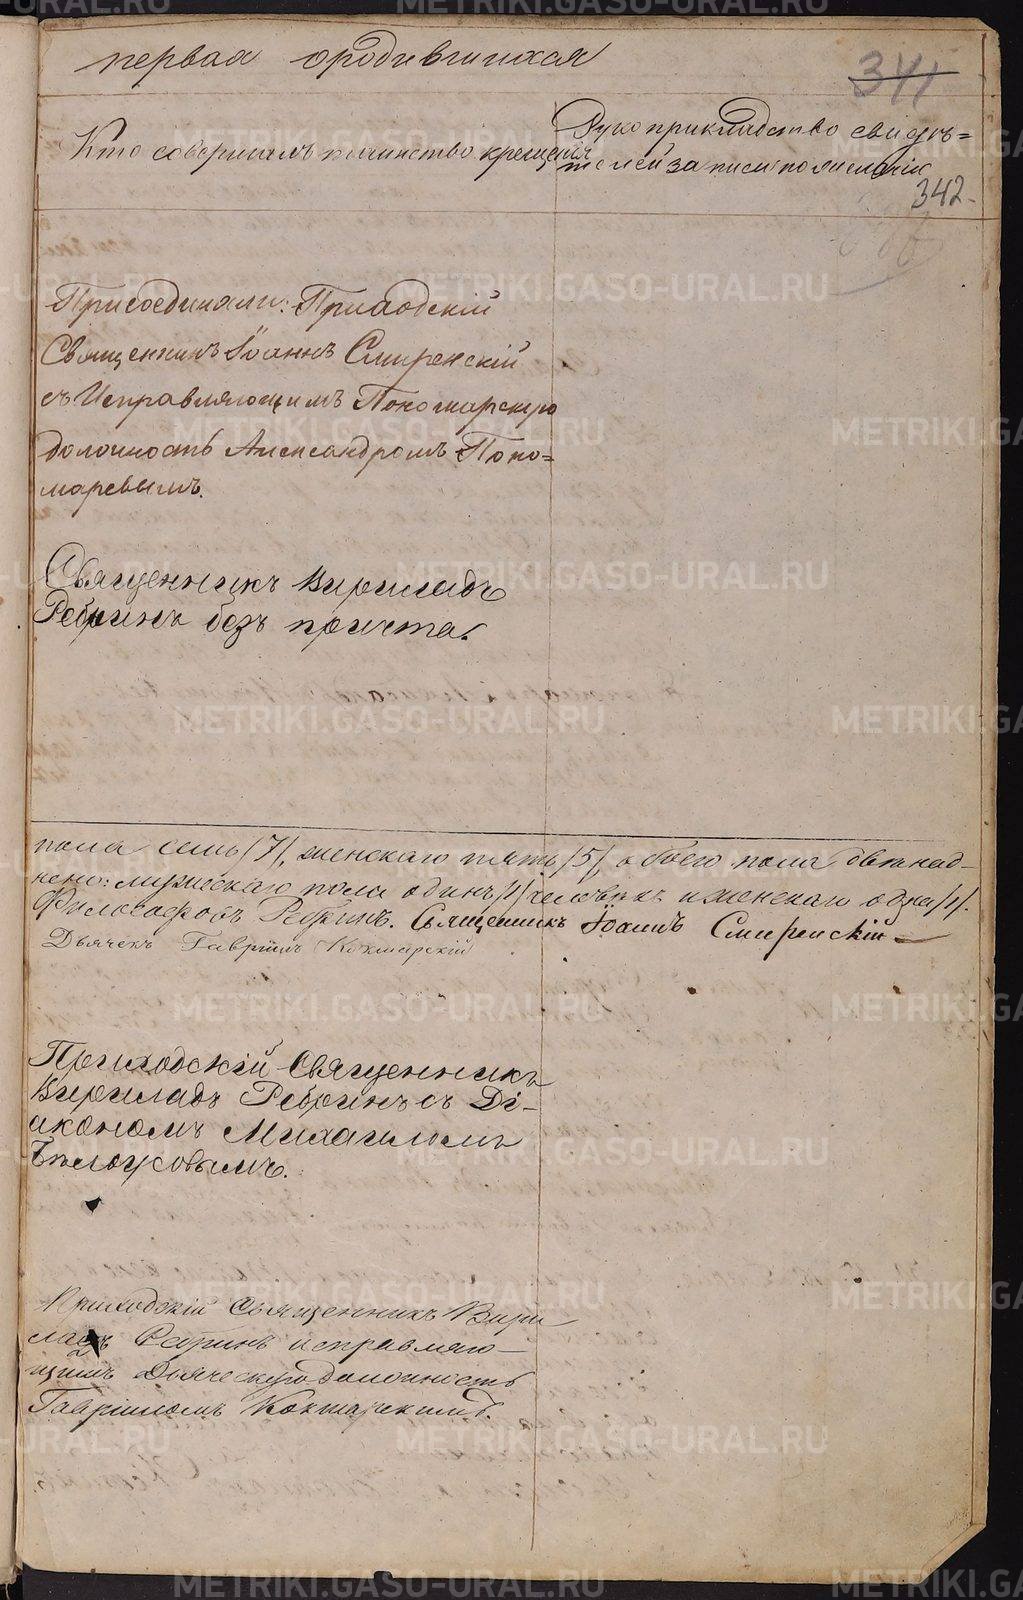 первая о родившихся
341
Кто совершалъ таинство крещенія
Рукоприкладство свидѣ=
телей записи по желанію
342.
Присоединяли: Приходскій
Священникъ Іоаннъ Смиренскій
съ Исправляющимъ Пономарскую
должность Александромъ Поно=
маревымъ.
Священникъ Вириладъ
Ребринъ безъ причта.
пола семь /7/, женскаго пять /5/, обоего пола двѣнад-
нено: мужескаго пола одинъ /1/ человѣкъ и женскаго одна /1/.
Ребринъ. Священникъ Іоаннъ Смиренскій
Дьячекъ Гавріилъ Кокшарскій
Приходскій Священникъ
Вириладъ Ребринъ съ Ді-
акономъ Михаиломъ
Бѣлоусовымъ.
Приходскій Священникъ Вири
ладъ Ребринъ исправляю-
щимъ Дьяческую должность
Гавріиломъ Кокшарскимъ.
METRIKI.GASO-URAL.RU